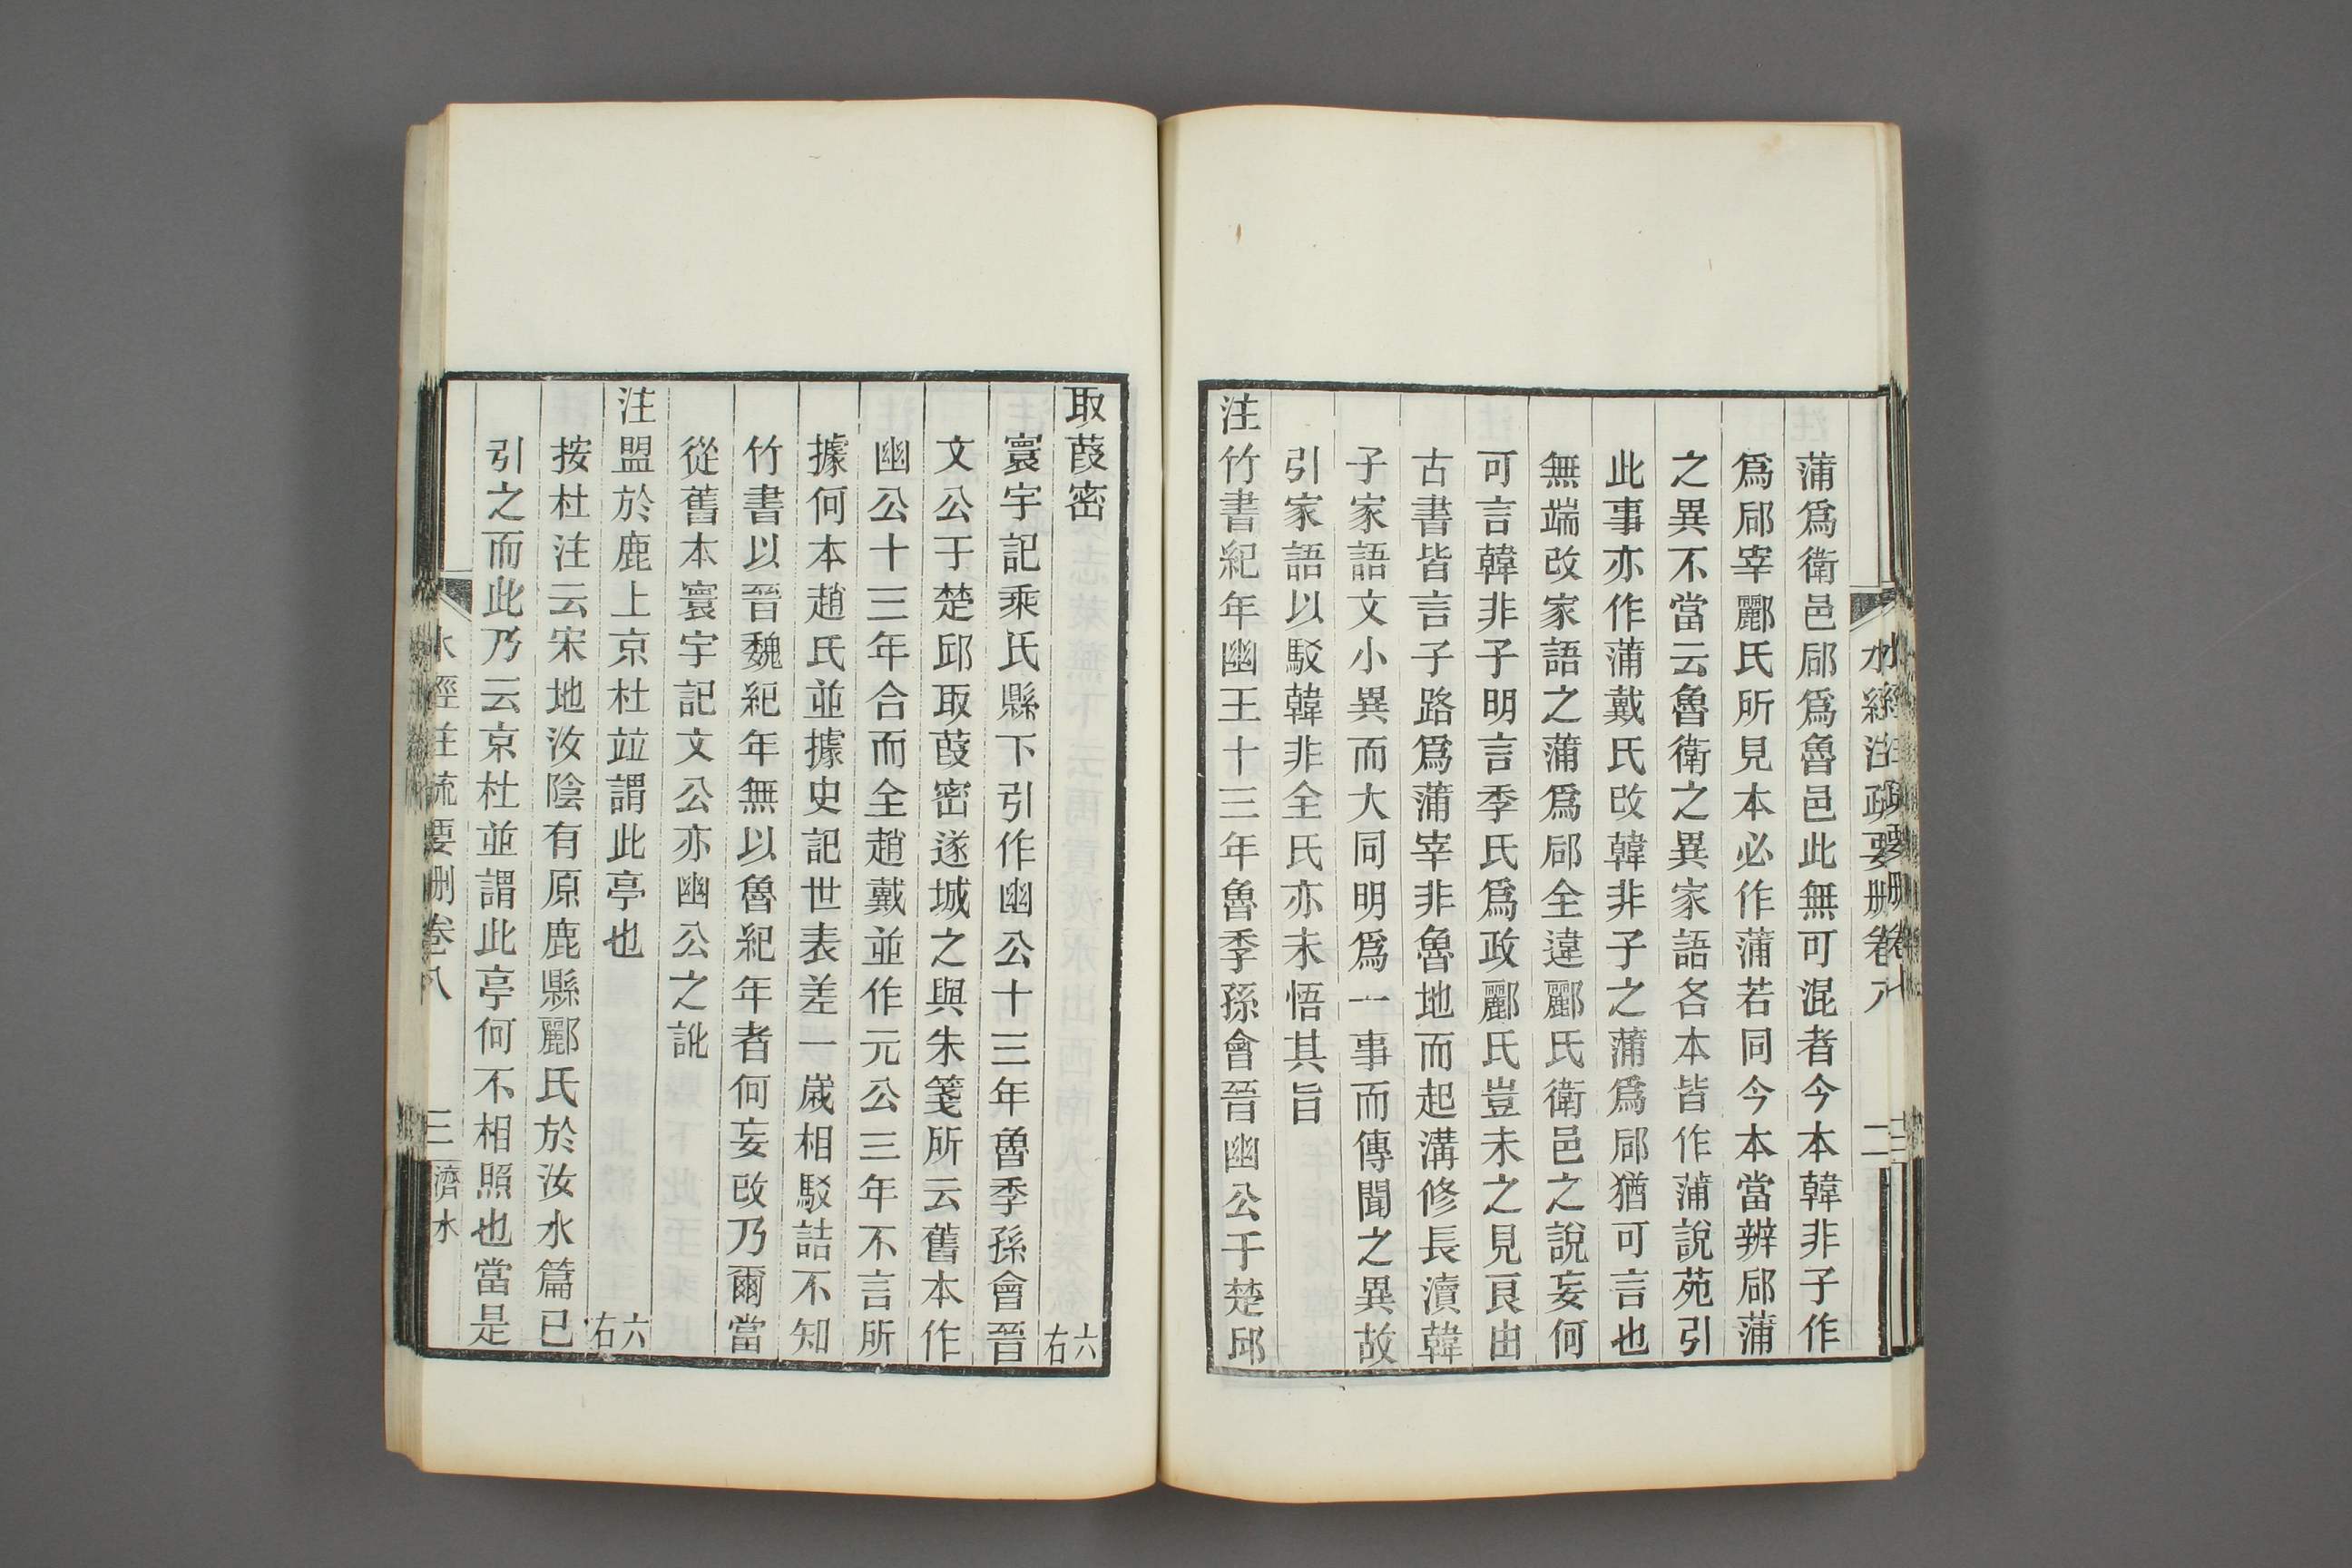 水經注疏要刪卷八
二
蒲爲衛邑郈爲魯邑此無可混者今本韓非子作
爲郈宰酈氏所見本必作蒲若同今本當辨郈蒲
之異不當云魯衛之異家語各本皆作蒲說苑引
此事亦作蒲戴氏改韓非子之蒲爲郈猶可言也
無端改家語之蒲爲郈全違酈氏衛邑之說妄何
可言韓非子明言季氏爲政酈氏豈未之見良由
古書皆言子路爲蒲宰非魯地而起溝修長瀆韓
子家語文小異而大同明爲一事而傳聞之異故
引家語以駁韓非全氏亦未悟其旨
注竹書紀年幽王十三年魯季孫會晉幽公于楚邱
取葭密 六右
寰宇記乘氏縣下引作幽公十三年魯季孫會晉
文公于楚邱取葭密遂城之與朱箋所云舊本作
幽公十三年合而全趙戴並作元公三年不言所
據何本趙氏並據史記世表差一歲相駁詰不知
竹書以晉魏紀年無以魯紀年者何妄改乃爾當
從舊本寰宇記文公亦幽公之訛
注盟於鹿上京杜竝謂此亭也 六右
按杜注云宋地汝陰有原鹿縣酈氏於汝水篇已
引之而此乃云京杜並謂此亭何不相照也當是
水經注疏要刪卷八
三 濟水